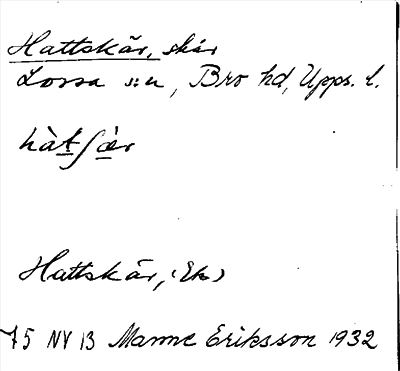 Hattskär, skär
Lossa s:n, Bro hd, Upps. l.
hàtʃæ̀r
Hattskär, (Ek)
75 NV 13 Manne Eriksson 1932